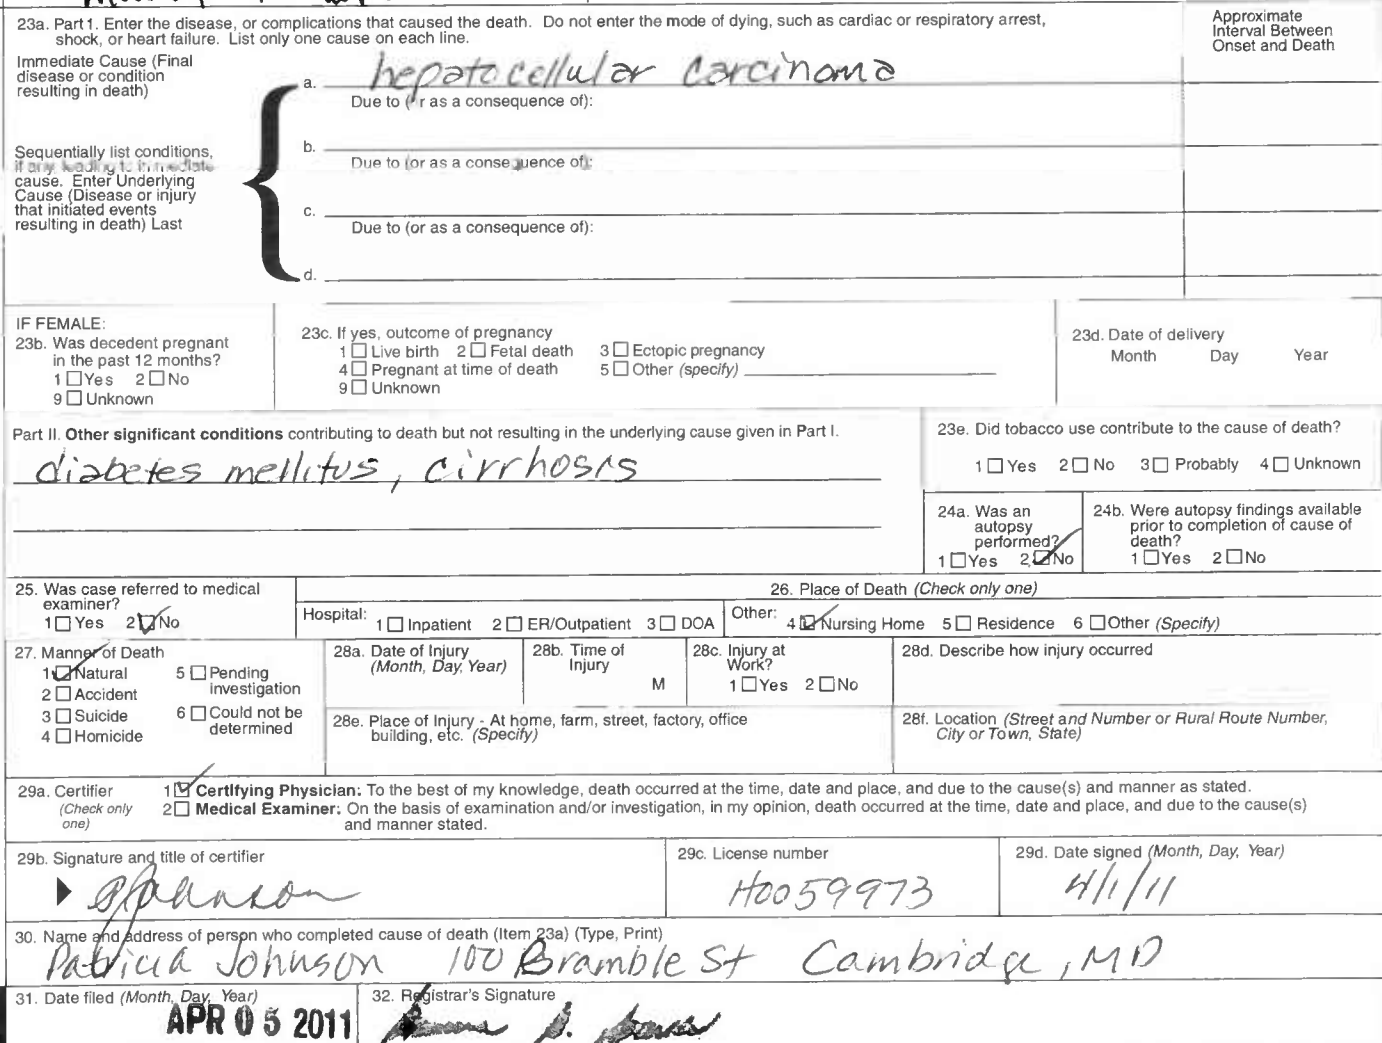 23a. Part 1. Enter the disease, or complications that caused the death. Do not enter the mode of dying, such as cardiac or respiratory arrest,
shock, or heart failure. List only one cause on each line.
Approximate
Interval Between
Onset and Death
Immediate Cause (Final
disease or condition
resulting in death)
a. hepatocellular carcinoma
Due to (or as a consequence of):
Sequentially list conditions,
if any, leading to immediate
cause. Enter Underlying
Cause (Disease or injury
that initiated events
resulting in death) Last
b.
Due to (or as a consequence of):
c.
Due to (or as a consequence of):
d.
IF FEMALE:
23b. Was decedent pregnant
in the past 12 months?
1 ☐ Yes 2 ☐ No
9 ☐ Unknown
23c. If yes, outcome of pregnancy
1 ☐ Live birth 2 ☐ Fetal death 3 ☐ Ectopic pregnancy
4 ☐ Pregnant at time of death 5 ☐ Other (specify)
9 ☐ Unknown
23d. Date of delivery
Month Day Year
Part II. Other significant conditions contributing to death but not resulting in the underlying cause given in Part I.
diabetes mellitus, cirrhosis
23e. Did tobacco use contribute to the cause of death?
1 ☐ Yes 2 ☐ No 3 ☐ Probably 4 ☐ Unknown
24a. Was an
autopsy
performed?
1 ☐ Yes 2 ☑ No
24b. Were autopsy findings available
prior to completion of cause of
death?
1 ☐ Yes 2 ☐ No
25. Was case referred to medical
examiner?
1 ☐ Yes 2 ☑ No
26. Place of Death (Check only one)
Hospital: 1 ☐ Inpatient 2 ☐ ER/Outpatient 3 ☐ DOA Other: 4 ☑ Nursing Home 5 ☐ Residence 6 ☐ Other (Specify)
27. Manner of Death
1 ☑ Natural 5 ☐ Pending
investigation
2 ☐ Accident
3 ☐ Suicide 6 ☐ Could not be
determined
4 ☐ Homicide
28a. Date of Injury
(Month, Day, Year)
28b. Time of
Injury
M
28c. Injury at
Work?
1 ☐ Yes 2 ☐ No
28d. Describe how injury occurred
28e. Place of Injury - At home, farm, street, factory, office
building, etc. (Specify)
28f. Location (Street and Number or Rural Route Number,
City or Town, State)
29a. Certifier
(Check only
one)
1 ☑ Certifying Physician: To the best of my knowledge, death occurred at the time, date and place, and due to the cause(s) and manner as stated.
2 ☐ Medical Examiner: On the basis of examination and/or investigation, in my opinion, death occurred at the time, date and place, and due to the cause(s)
and manner stated.
29b. Signature and title of certifier
PJohnson
29c. License number
H0059973
29d. Date signed (Month, Day, Year)
4/1/11
30. Name and address of person who completed cause of death (Item 23a) (Type, Print)
Patricia Johnson 100 Bramble St Cambridge, MD
31. Date filed (Month, Day, Year)
APR 05 2011
32. Registrar's Signature